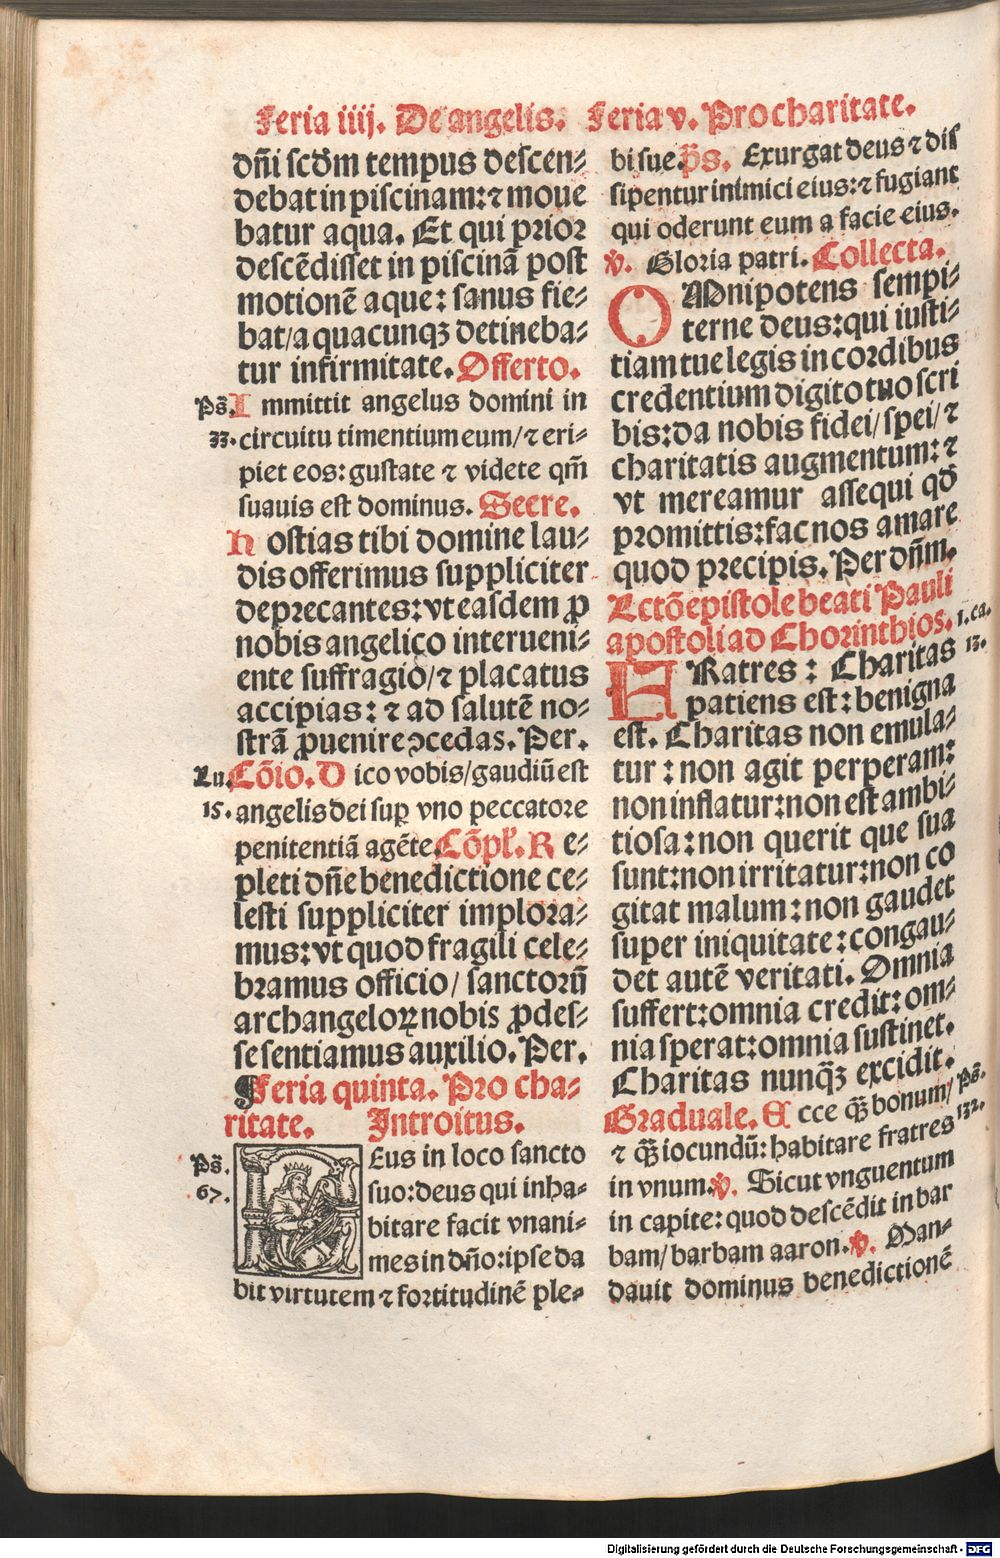 Feria iiij. De angelis. Feria v. Pro charitate.
dñi scd̃m tempus descen⸗
debat in piscinam: ⁊ moue
batur aqua. Et qui prior
descẽdisset in piscinã post
motionẽ aque: sanus fie⸗
bat/a quacunqꝫ detineba⸗
tur infirmitate. Offerto.
Ps̃. Immittit angelus domini in
33. circuitu timentium eum/⁊ eri⸗
piet eos: gustate ⁊ videte qm̃
suauis est dominus. Secre.
Hostias tibi domine lau⸗
dis offerimus suppliciter
deprecantes: vt easdem ꝓ
nobis angelico interueni⸗
ente suffragio/⁊ placatus
accipias: ⁊ ad salutẽ no⸗
strã ꝓuenire ↄcedas. Per.
Lu. Cõio. Dico vobis/gaudiũ est
15. angelis dei suꝑ vno peccatore
penitentiã agẽte. Cõpl̃. Re⸗
pleti dñe benedictione ce⸗
lesti suppliciter implora⸗
mus: vt quod fragili cele⸗
bramus officio/ sanctorũ
archangeloꝝ nobis ꝓdes⸗
se sentiamus auxilio. Per.
Feria quinta. Pro cha⸗
ritate. Introitus.
Ps̃. DEus in loco sancto
67. suo: deus qui inha⸗
bitare facit vnani⸗
mes in dño: ipse da
bit virtutem ⁊ fortitudinẽ ple⸗
bi sue. p̃s. Exurgat deus ⁊ dis
sipentur inimici eius: ⁊ fugiant
qui oderunt eum a facie eius.
℣. Gloria patri. Collecta.
OMnipotens sempi⸗
terne deus: qui iusti⸗
tiam tue legis in cordibus
credentium digito tuo scri
bis: da nobis fidei/ spei/ ⁊
charitatis augmentum: ⁊
vt mereamur assequi qd̃
promittis: fac nos amare
quod precipis. Per dñm.
Lectõ epistole beati Pauli
apostoli ad Chorinthios. 1. ca.
FRatres: Charitas 13.
patiens est: benigna
est. Charitas non emula⸗
tur: non agit perperam:
non inflatur: non est ambi⸗
tiosa: non querit que sua
sunt: non irritatur: non co
gitat malum: non gaudet
super iniquitate: congau⸗
det autẽ veritati. Omnia
suffert: omnia credit: om⸗
nia sperat: omnia sustinet.
Charitas nunq̃ꝫ excidit.
Graduale. Ecce q̃ꝫ bonum/ Ps̃.
⁊ q̃ꝫ iocundũ: habitare fratres 132.
in vnum. ℣. Sicut vnguentum
in capite: quod descẽdit in bar
bam/ barbam aaron. ℣. Man⸗
dauit dominus benedictionẽ
Digitalisierung gefördert durch die Deutsche Forschungsgemeinschaft - DFG